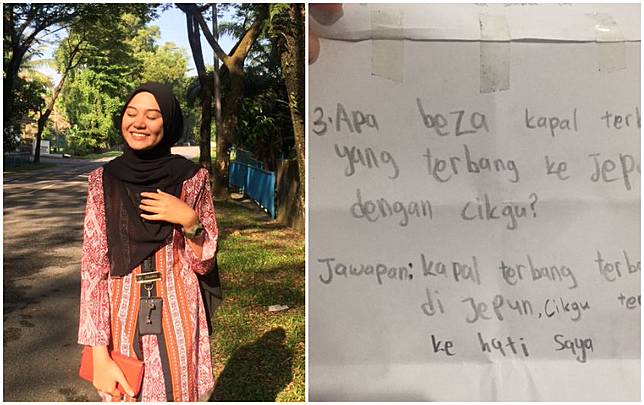 3. Apa beza kapal terb
yang terbang ke Jepu
dengan cikgu?
Jawapan: kapal terbang terba
di Jepun, cikgu te
ke hati saya